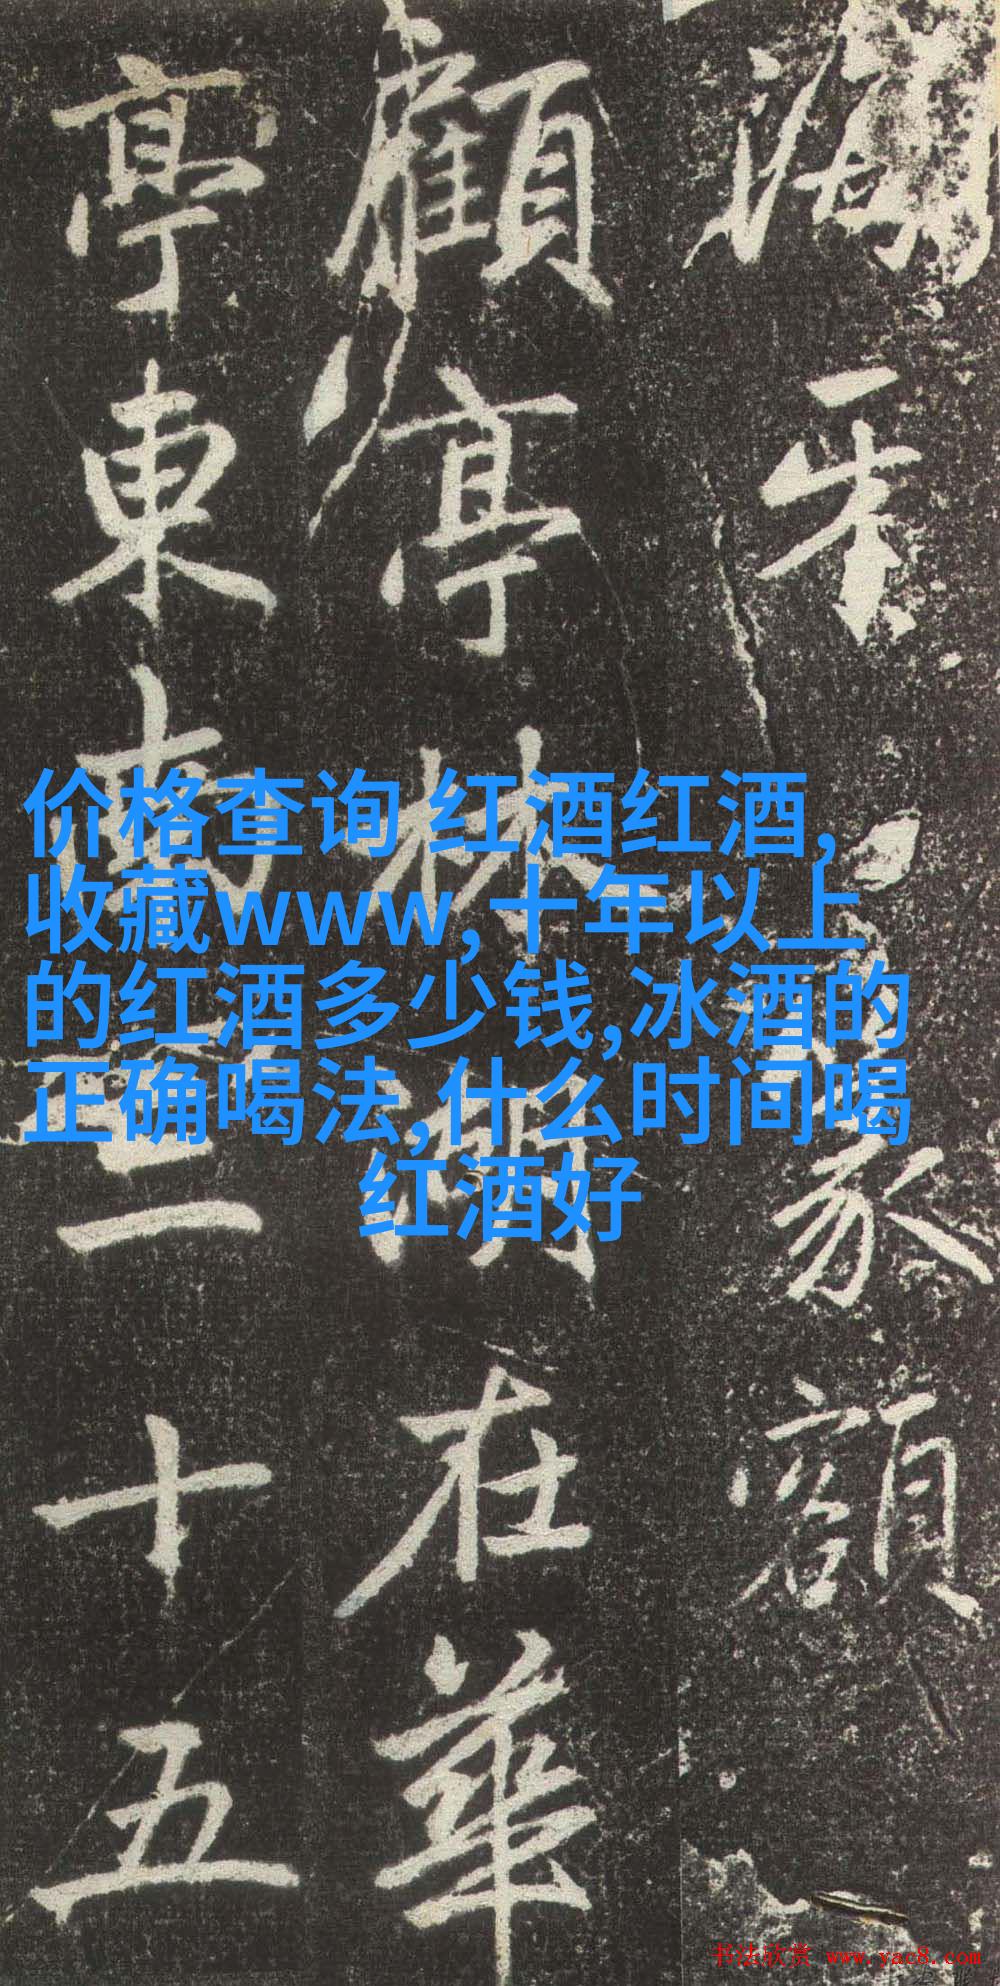 篆額
顧亭林湖在華
亭東南三十五
价格查询 红酒红酒,
收藏www,十年以上
的红酒多少钱,冰酒的
正确喝法,什么时间喝
红酒好
书法欣赏 www.yac8.com